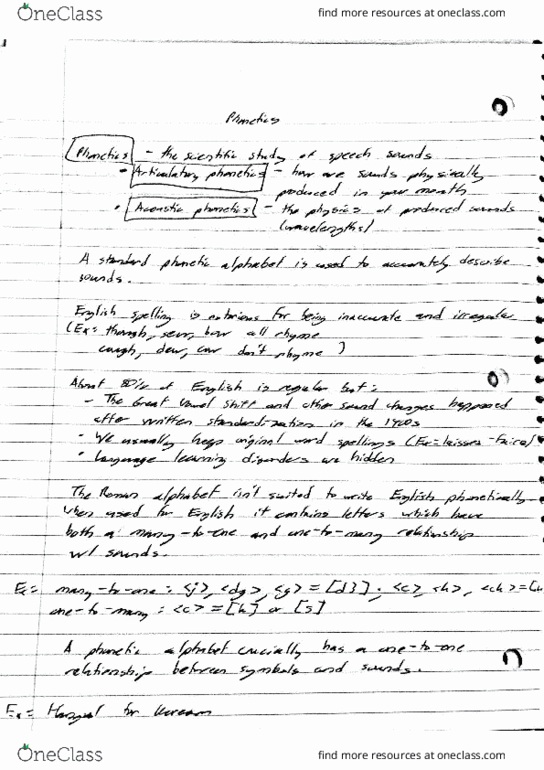 OneClass
find more resources at oneclass.com
Phonetics
Phonetics - the scientific study of speech sounds
• Articulatory phonetics - how are sounds physically
produced in your mouth
• Acoustic phonetics - the physics of produced sounds
(wavelengths)
A standard phonetic alphabet is used to accurately describe
sounds.
English spelling is notorious for being inaccurate and irregular
(Ex= though, sew, bow all rhyme
cough, dew, cow don't rhyme )
About 80% of English is regular but:
- The Great Vowel Shift and other sound changes happened
after written standardization in the 1400s
- We usually keep original word spellings (Ex= laissez-faire)
• Language learning disorders are hidden
The Roman alphabet isn't suited to write English phonetically
when used for English it contains letters which have
both a many-to-one and one-to-many relationship
w/ sounds.
Ex= many-to-one = <j>, <dg>, <g> = [dʒ] . <c>, <k>, <ch> = [k
one-to-many : <c> = [k] or [s]
A phonetic alphabet crucially has a one-to-one
relationship between symbols and sounds.
Ex= Hangul for Korean
OneClass
find more resources at oneclass.com